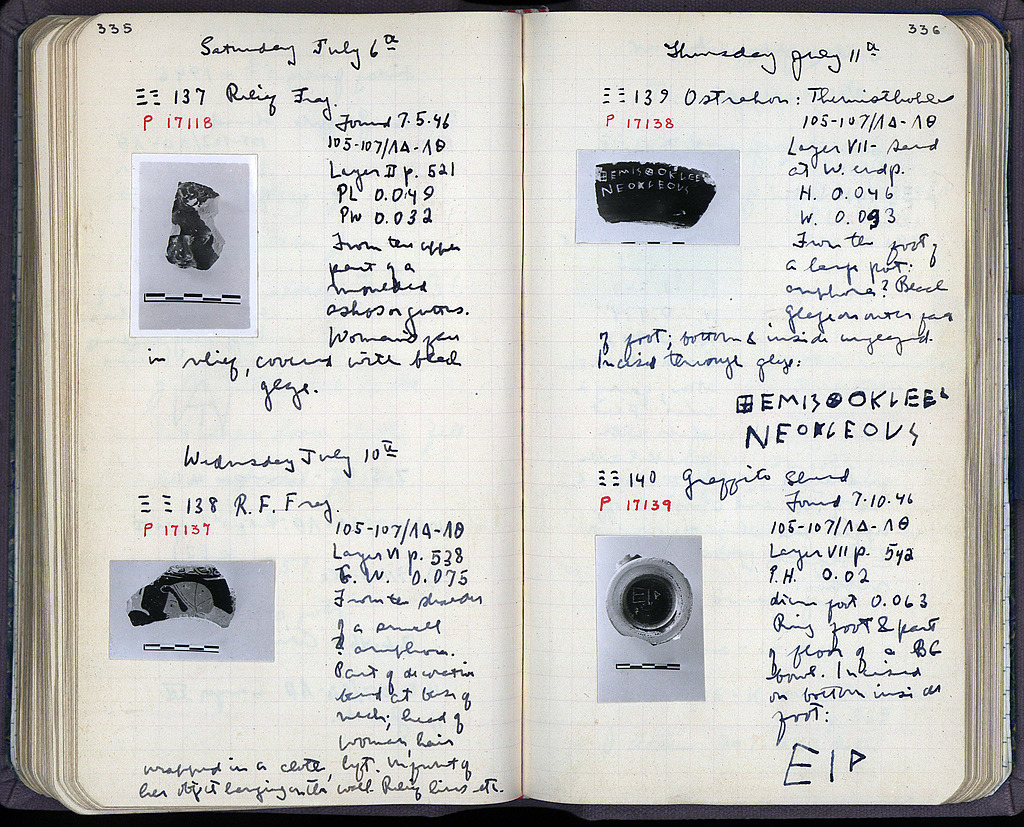 335
Saturday July 6th
ΞΞ 137 Relief Frag.
P 17118
Found 7.5.46
105-107/ΛΔ-ΛΘ
Layer II p. 521
PL 0.049
PW 0.032
From the upper
part of a
moulded
askos or guttus.
Woman's face
in relief, covered with black
glaze.
Wednesday July 10th
ΞΞ 138 R. F. Frag.
P 17137
105-107/ΛΔ-ΛΘ
Layer VI p. 538
G. W. 0.075
From the shoulder
of a small
? amphora.
Part of decorative
band at base of
neck; head of
woman, hair
wrapped in a cloth, left. In front of
her object hanging on the wall. Relief lines etc.
336
Thursday July 11th
ΞΞ 139 Ostrakon: Themistokles
P 17138
105-107/ΛΔ-ΛΘ
Layer VII - sand
at W. end p.
H. 0.046
W. 0.093
From the foot of
a large pot:
amphora? Black
glaze on outer face
of foot; bottom & inside unglazed.
Incised through glaze:
⊞EMISΘOKLEES
NEOKLEOUS
⊞EMISΘOKLEES
NEOKLEOUS
ΞΞ 140 Graffito Sherd
P 17139
Found 7.10.46
105-107/ΛΔ-ΛΘ
Layer VII p. 542
P.H. 0.02
diam foot 0.063
Ring foot & part
of floor of a BG
bowl. Incised
on bottom inside
foot:
EIP